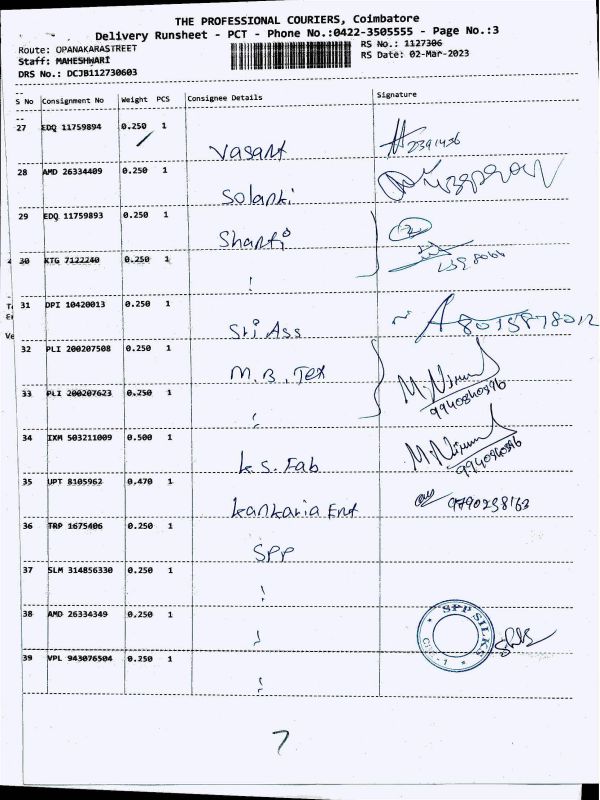 THE PROFESSIONAL COURIERS, Coimbatore
Delivery Runsheet - PCT - Phone No.:0422-3505555 - Page No.:3
Route: OPANAKARASTREET
RS No.: 1127306
Staff: MAHESHWARI
RS Date: 02-Mar-2023
DRS No.: DCJB112730603
S No Consignment No Weight PCS Consignee Details Signature
27 EDQ 11759894 0.250 1
Vasant
28 AMD 26334409 0.250 1
Solanki
29 EDQ 11759893 0.250 1
Shanti
30 KTG 7122240 0.250 1
31 DPI 10420013 0.250 1
Sri Ass
32 PLI 200207508 0.250 1
M.B. Tex
33 PLI 200207623 0.250 1
9940840396
34 IXM 503211009 0.500 1
K.S. Fab
35 UPT 8105962 0.470 1
Kankaria Ent 9790238163
36 TRP 1675406 0.250 1
SPP
37 SLM 314856330 0.250 1
38 AMD 26334349 0.250 1
SPP SILKS
39 VPL 943076504 0.250 1
7